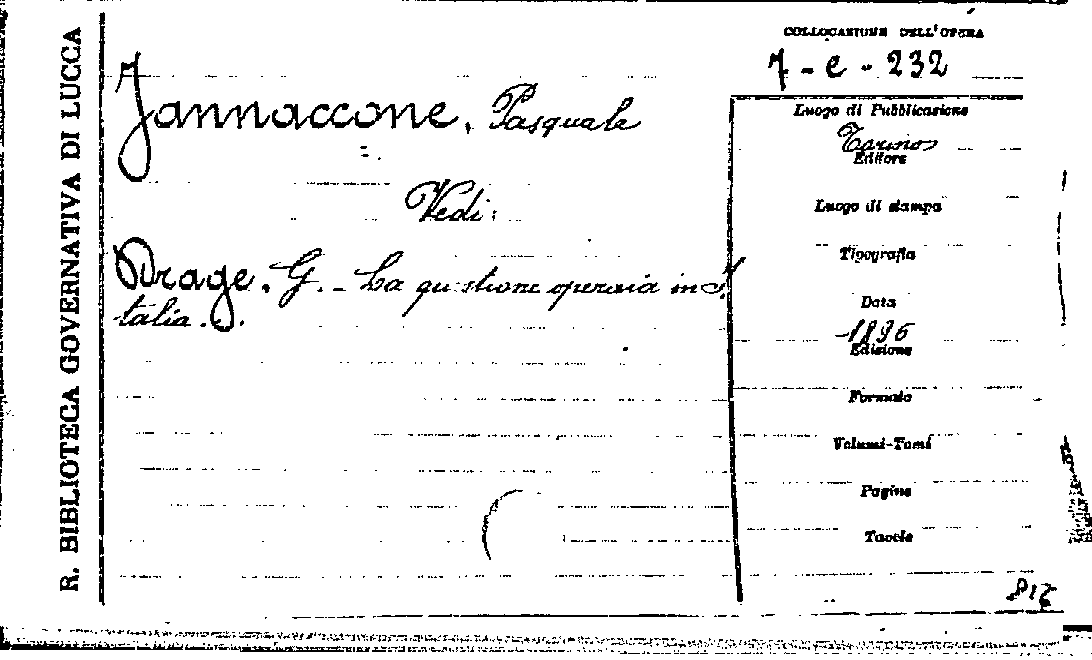 R. BIBLIOTECA GOVERNATIVA DI LUCCA
COLLOCAZIONE DELL'OPERA
7 - e - 232
Jannaccone, Pasquale
Vedi:
Drage. G. - La questione operaia in I.
talia.
Luogo di Pubblicazione
Torino
Editore
Luogo di stampa
Tipografia
Data
1896
Edizione
Formato
Volumi-Tomi
Pagine
Tavole